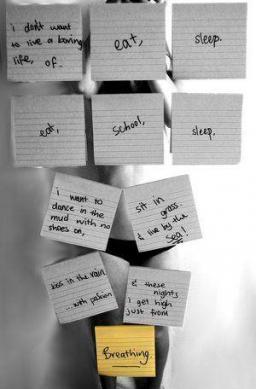 i don't want
to live a boring
life, of..
eat,
sleep.
eat,
School,
sleep,
i want to
dance in the
mud with no
shoes on,
sit in
grass.
& live by the
Sea!
kiss in the rain
...with passion
& these
nights
I get high
just from
Breathing.